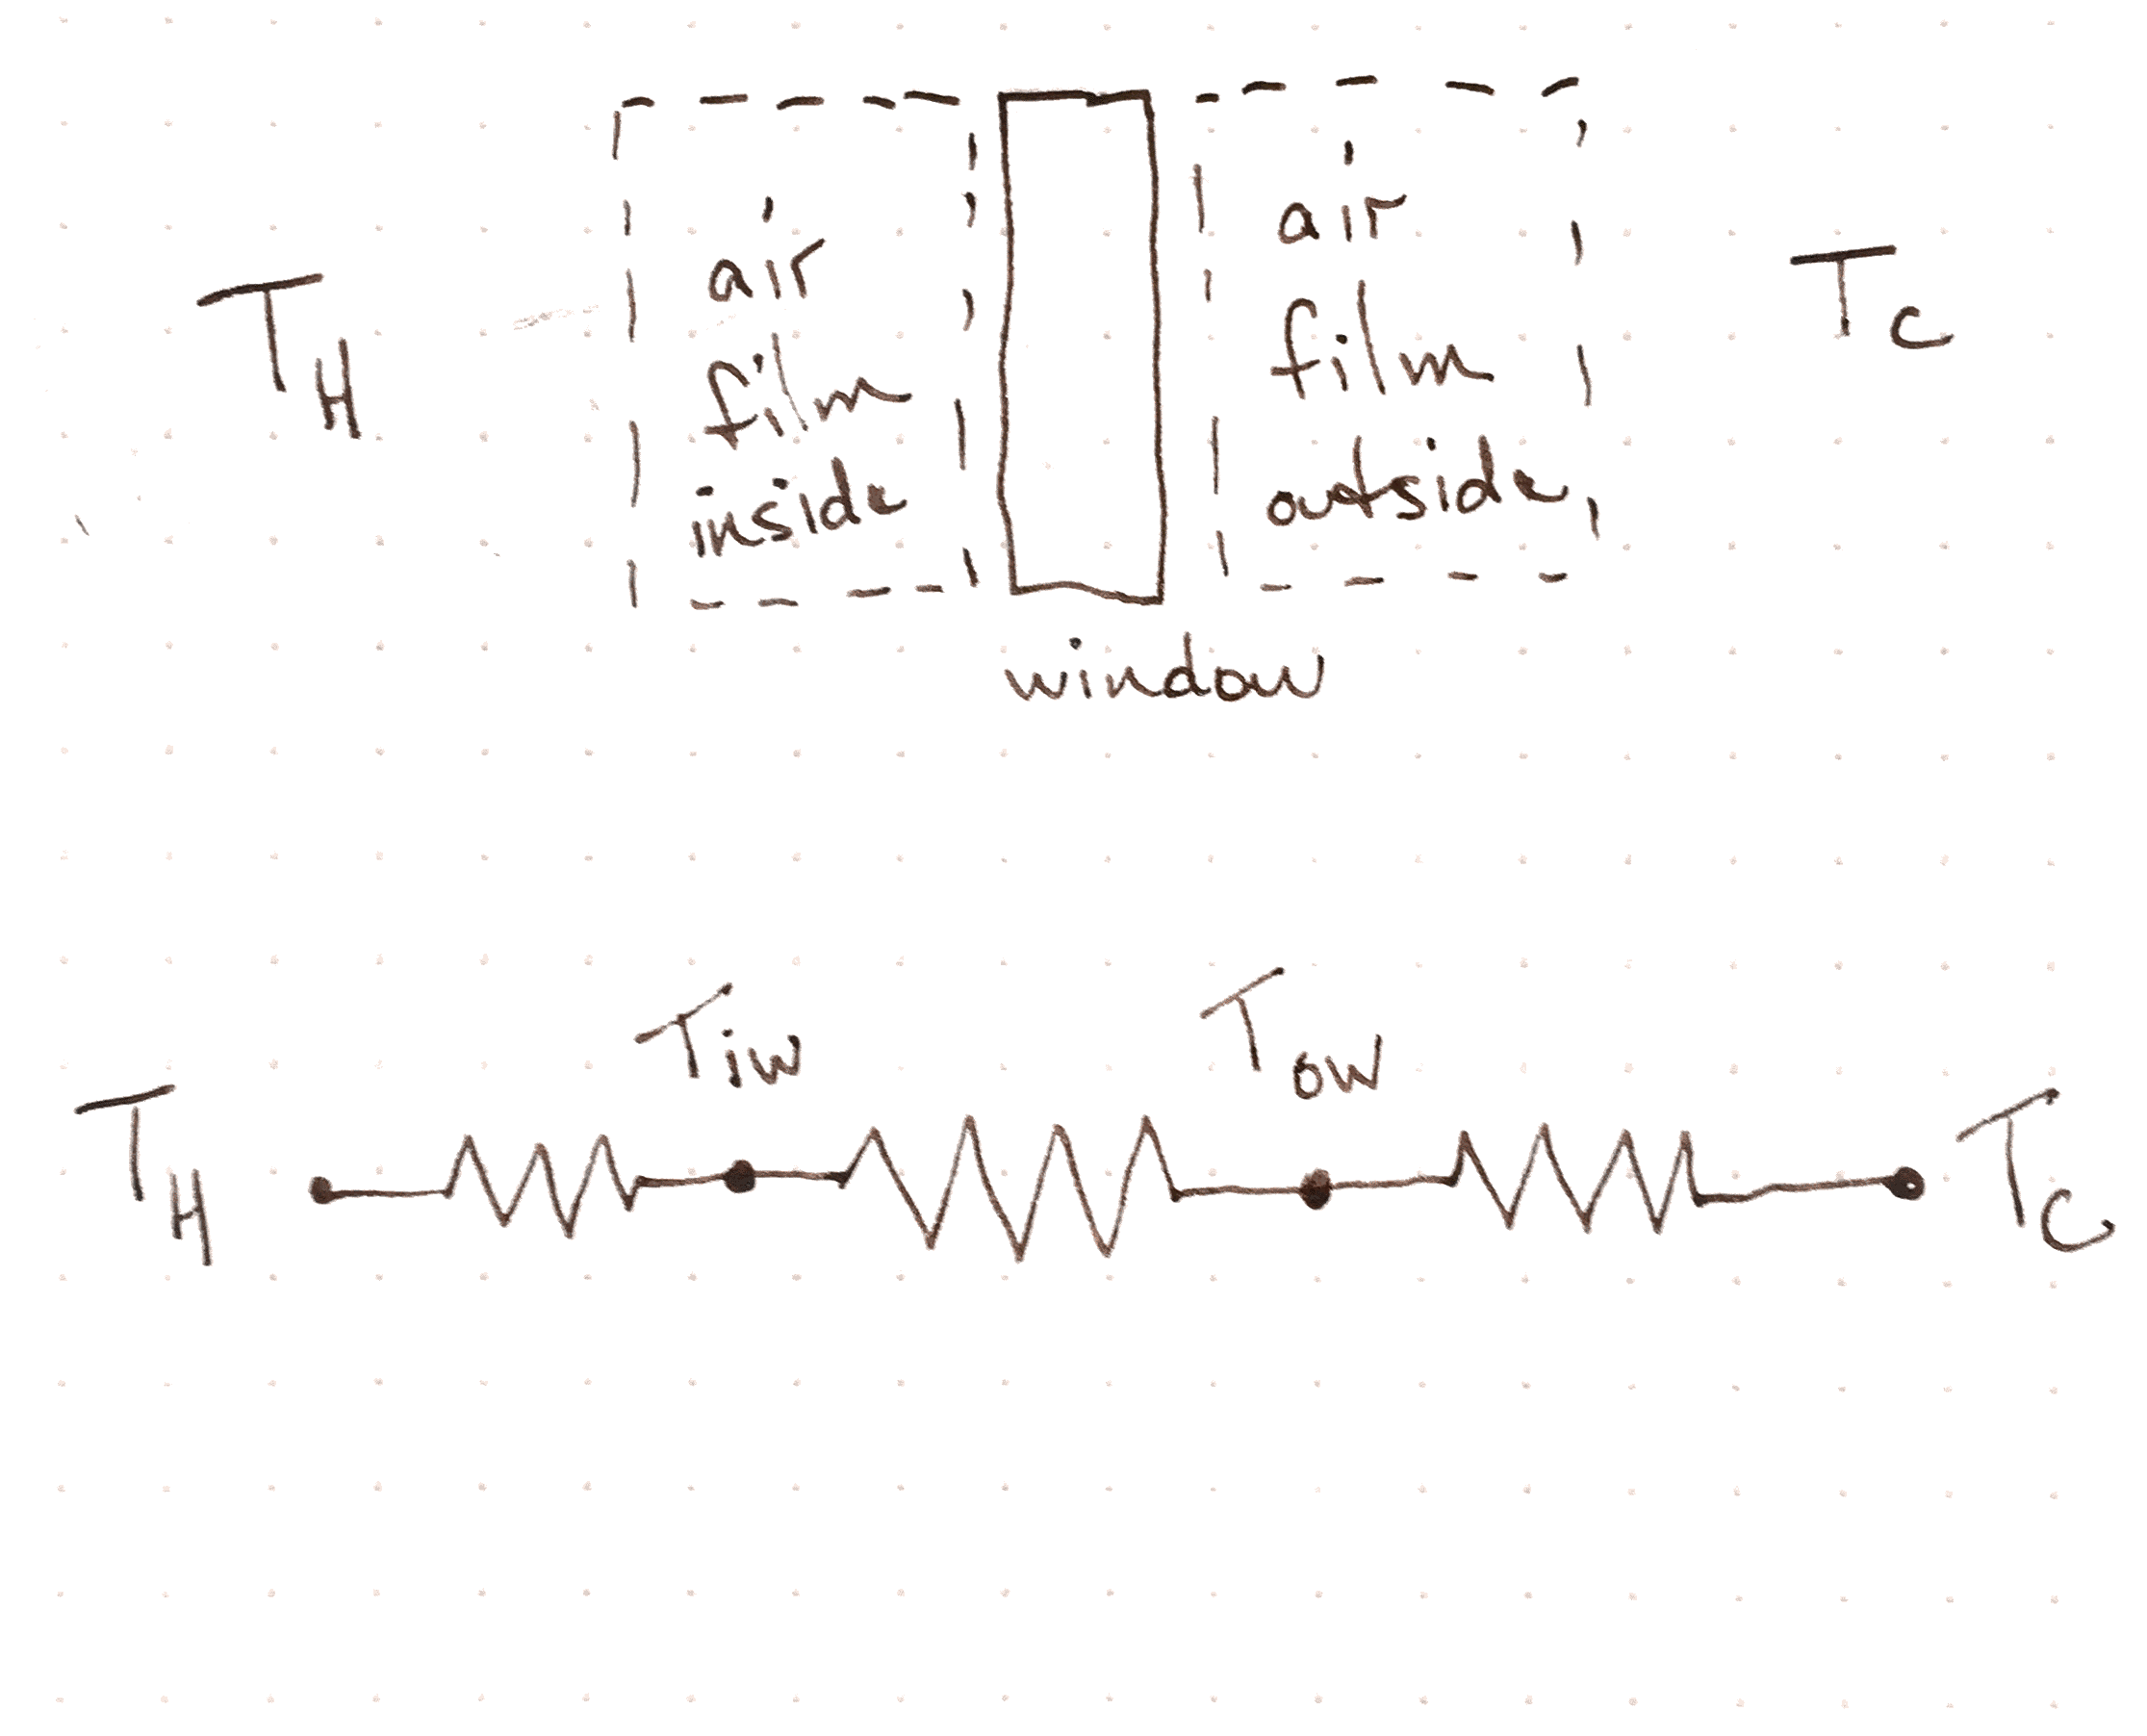 T_H
air
film
inside
air
film
outside,
T_C
window
T_iw
T_ow
T_H
T_C